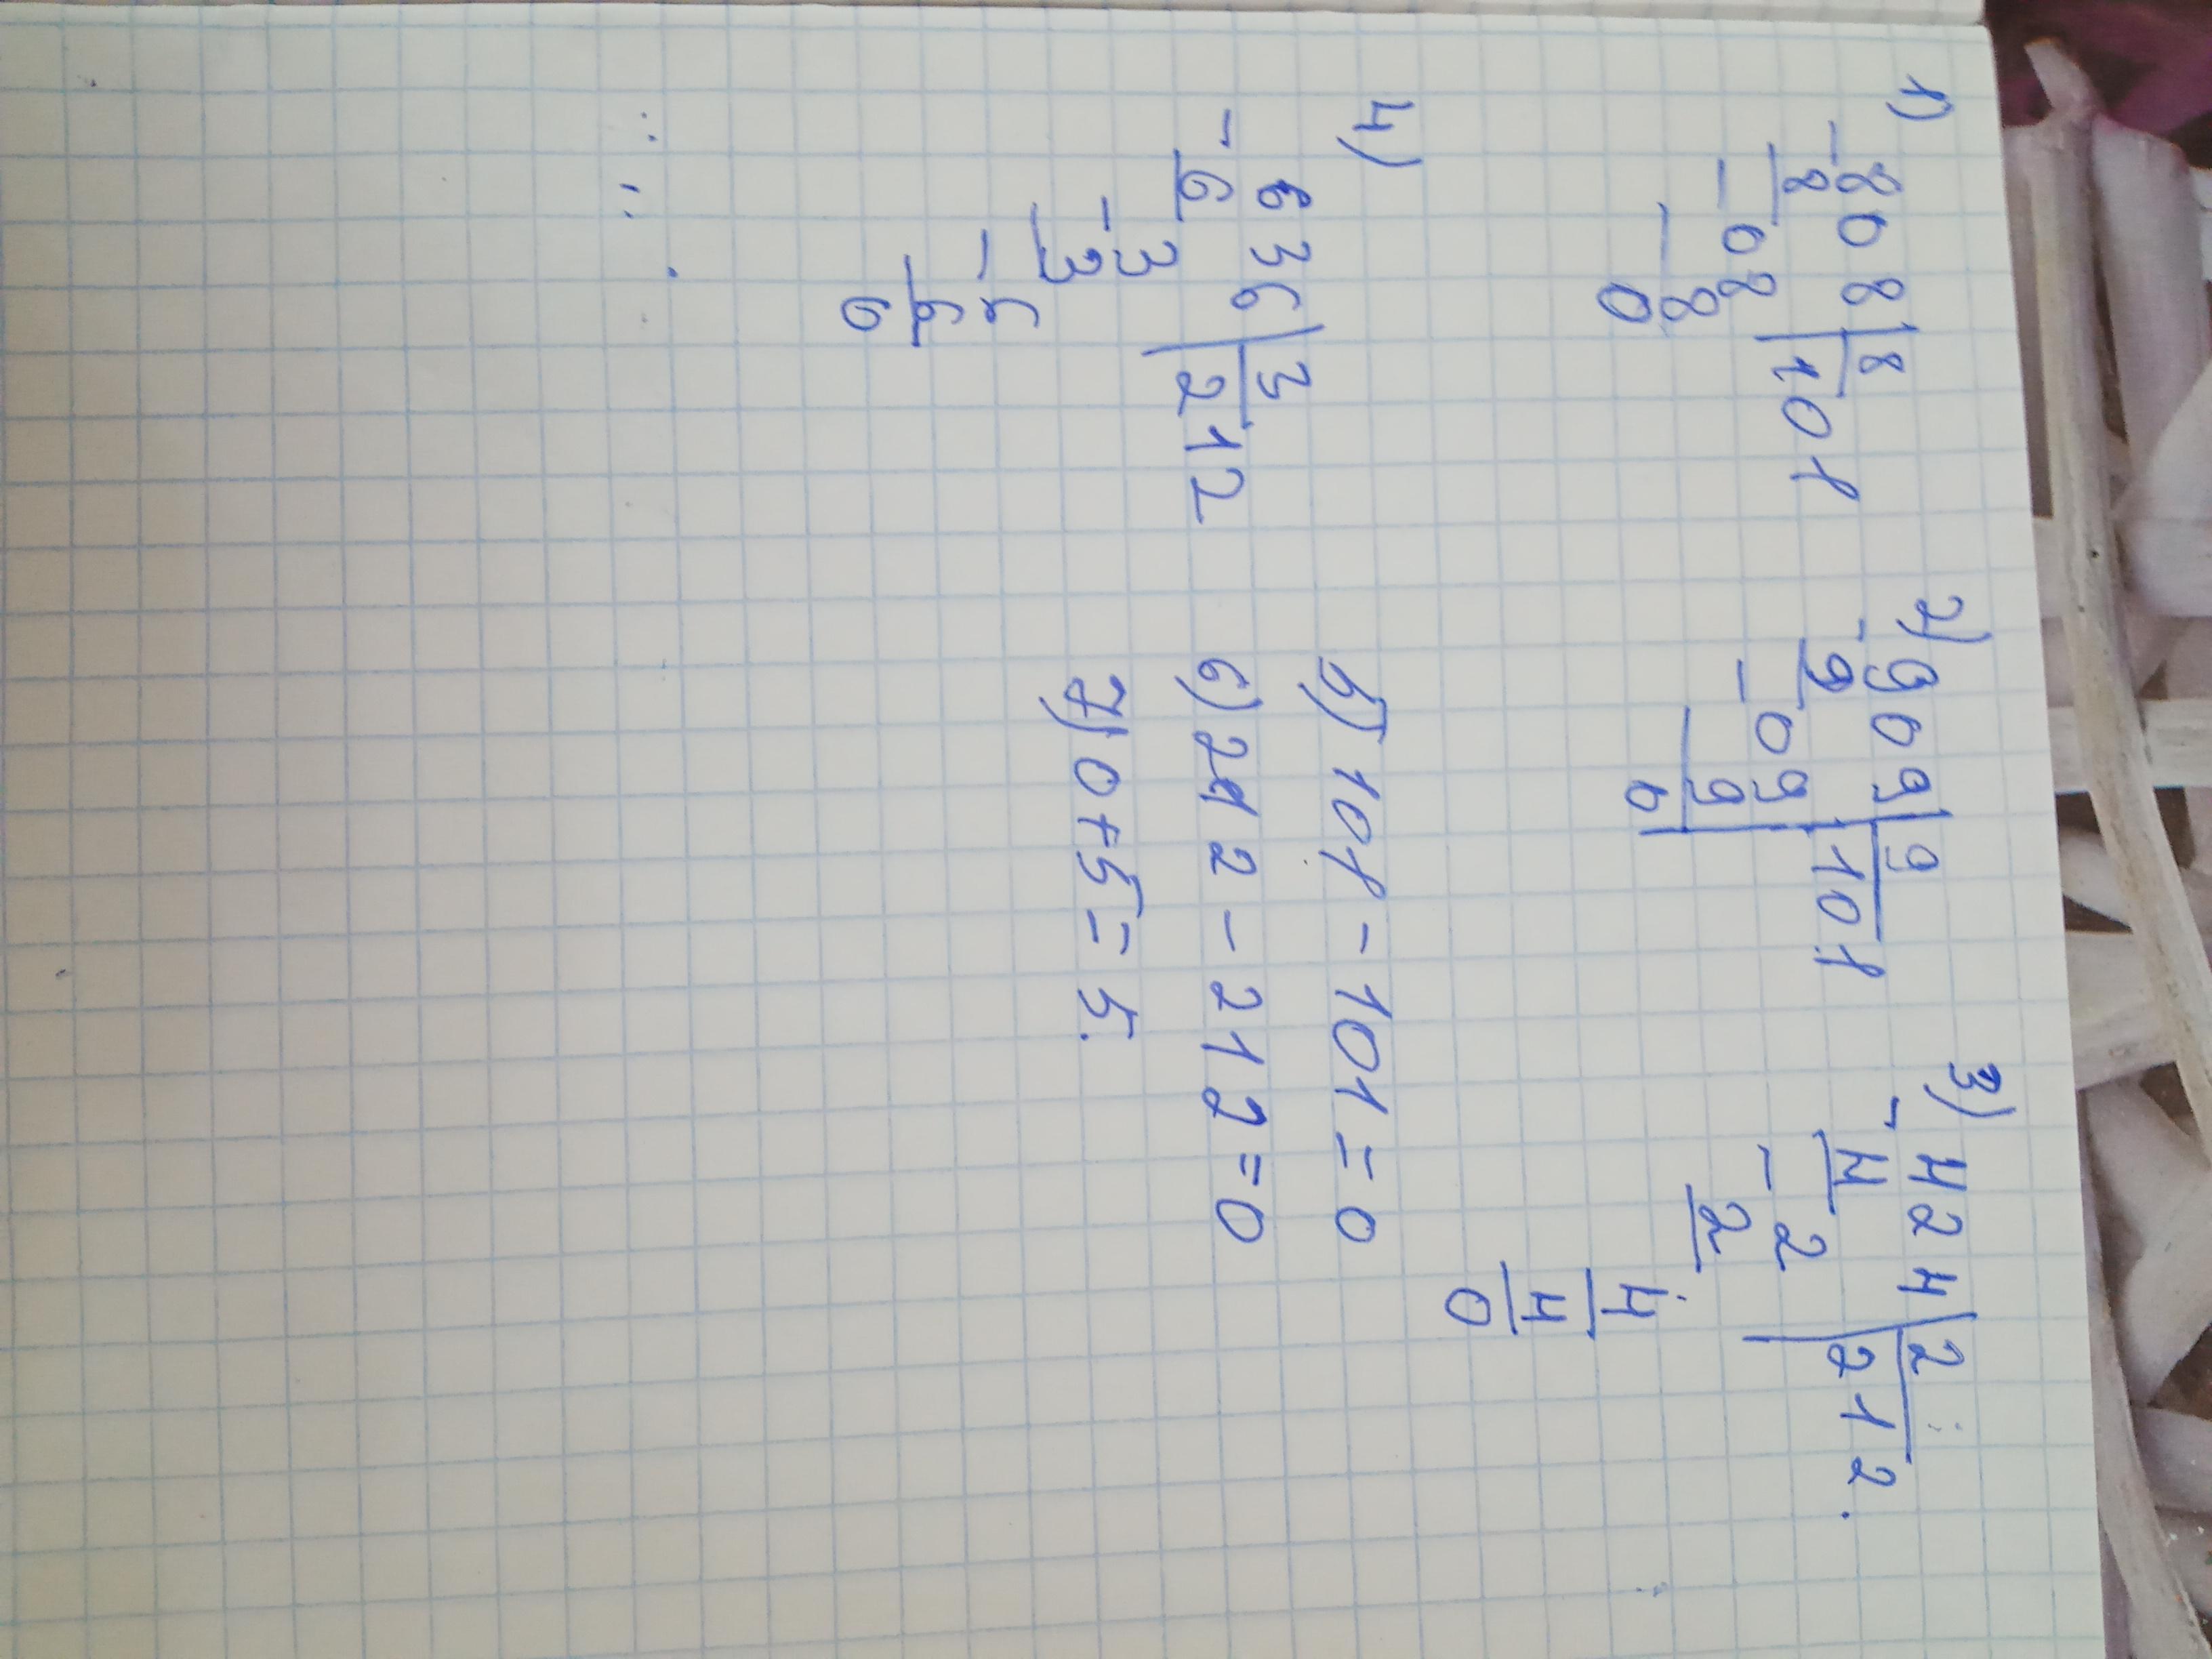 1) 2) 3)
-808|8 -909|9 -424|2
8 |101 9 |101 4 |212.
-08 -09 -2
8 9 2
0 0 4
4
0
4) 5) 101-101=0
636|3 6) 212-212=0
-6 |212 7) 0+5=5.
-3
3
-6
6
0